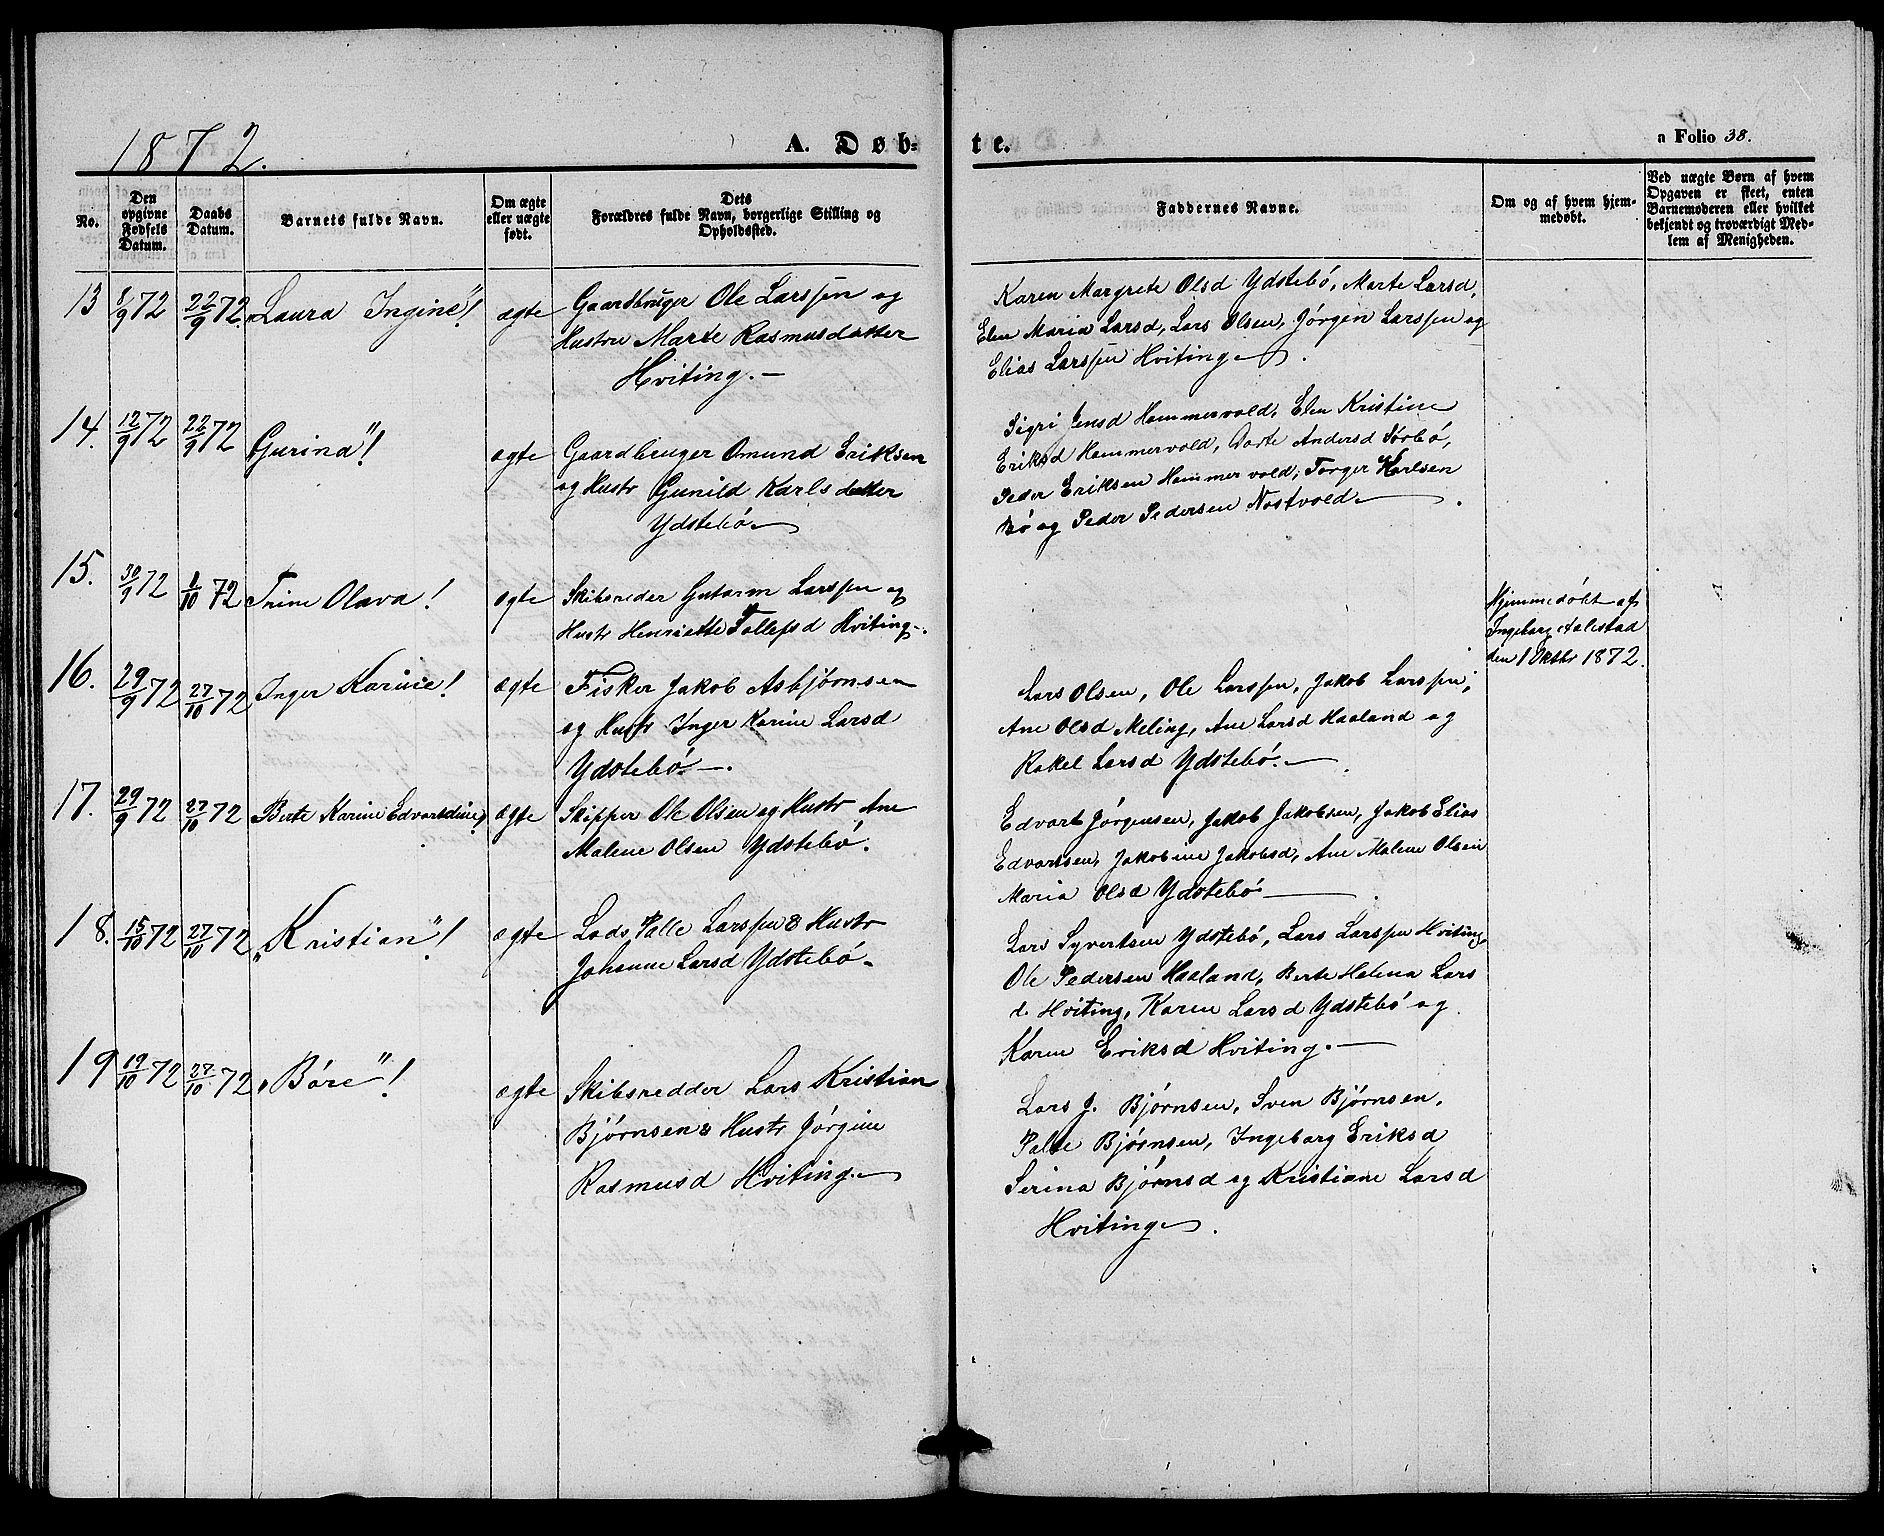 1872.
A. Døb-
te.
a Folio 38.
No.
Den opgivne Fødsels Datum.
Daabs Datum.
Barnets fulde Navn.
Om ægte eller uægte født.
Dets Forældres fulde Navn, borgerlige Stilling og Opholdssted.
Faddernes Navne.
Om og af hvem hjem-
medøbt.
Ved uægte Børn af hvem
Opgaven er skeet, enten
Barnemoderen eller hvilket
bekjendt og troværdigt Med-
lem af Menigheden.
13 8/9 72 22/9 72 „Laura Ingine"! ægte
Gaardbruger Ole Larssen og
Hustru Marte Rasmusdatter
Hviting.—
Karen Margrete Olsd Ydstebö, Marte Larsd,
Elen Maria Larsd, Lars Olsen, Jörgen Larssen og
Elias Larssen Hviting.
14. 12/9 72 22/9 72 Gurina"! ægte
Gaardbruger Omund Eriksen
og Hustr Gunild Karlsdatter
Ydstebö
Sigri Jensd Hammervold, Elen Kristine
Eriksd Hammervold, Dorte Andersd Sörbö,
Peder Eriksen Hammervold, Torger Karlsen
Bö og Peder Pedersen Nostvold.
15. 30/9 72 1/10 72 Trine Olava! ægte
Skibsreder Gutorm Larssen og
Hustr Henriette Tollefsd Hviting.
Hjemmedöbt af
Ingeborg Aalestad
den 1 Oktbr 1872.
16. 29/9 72 27/10 72 Inger Karine! ægte
Fisker Jakob Asbjørnsen
og Hustr Inger Karine Larsd
Ydstebö.—
Lars Olsen, Ole Larssen, Jakob Larssen,
Ane Olsd Meling, Ane Larsd Haaland og
Rakel Larsd Ydstebö.—
17. 29/9 72 27/10 72 Berte Karine Edvardine! ægte
Skipper Ole Olsen og Hustr Ane
Malene Olsen Ydstebö.
Edvart Jörgensen, Jakob Jakobsen, Jakob Elias
Edvartsen, Jakobine Jakobsd, Ane Malene Olsen
Maria Olsd Ydstebö
18. 15/10 72 27/10 72 „Kristian"! ægte
Lods Palle Larssen & Hustr
Johanne Larsd Ydstebö.
Lars Syvertsen Ydstebö, Lars Larssen Hviting,
Ole Pedersen Haaland, Berte Helena Lars
d. Hviting, Karen Larsd Ydstebö og
Karen Eriksd Hviting.—
19 19/10 72 27/10 72 „Böre"! ægte
Skibsredder Lars Kristian
Bjørnsen & Hustr Jörgine
Rasmusd Hviting.
Lars J. Bjørnsen, Sven Bjørnsen,
Palle Bjørnsen, Ingeborg Eriksd
Serina Bjørnsd og Kristiane Larsd
Hviting.